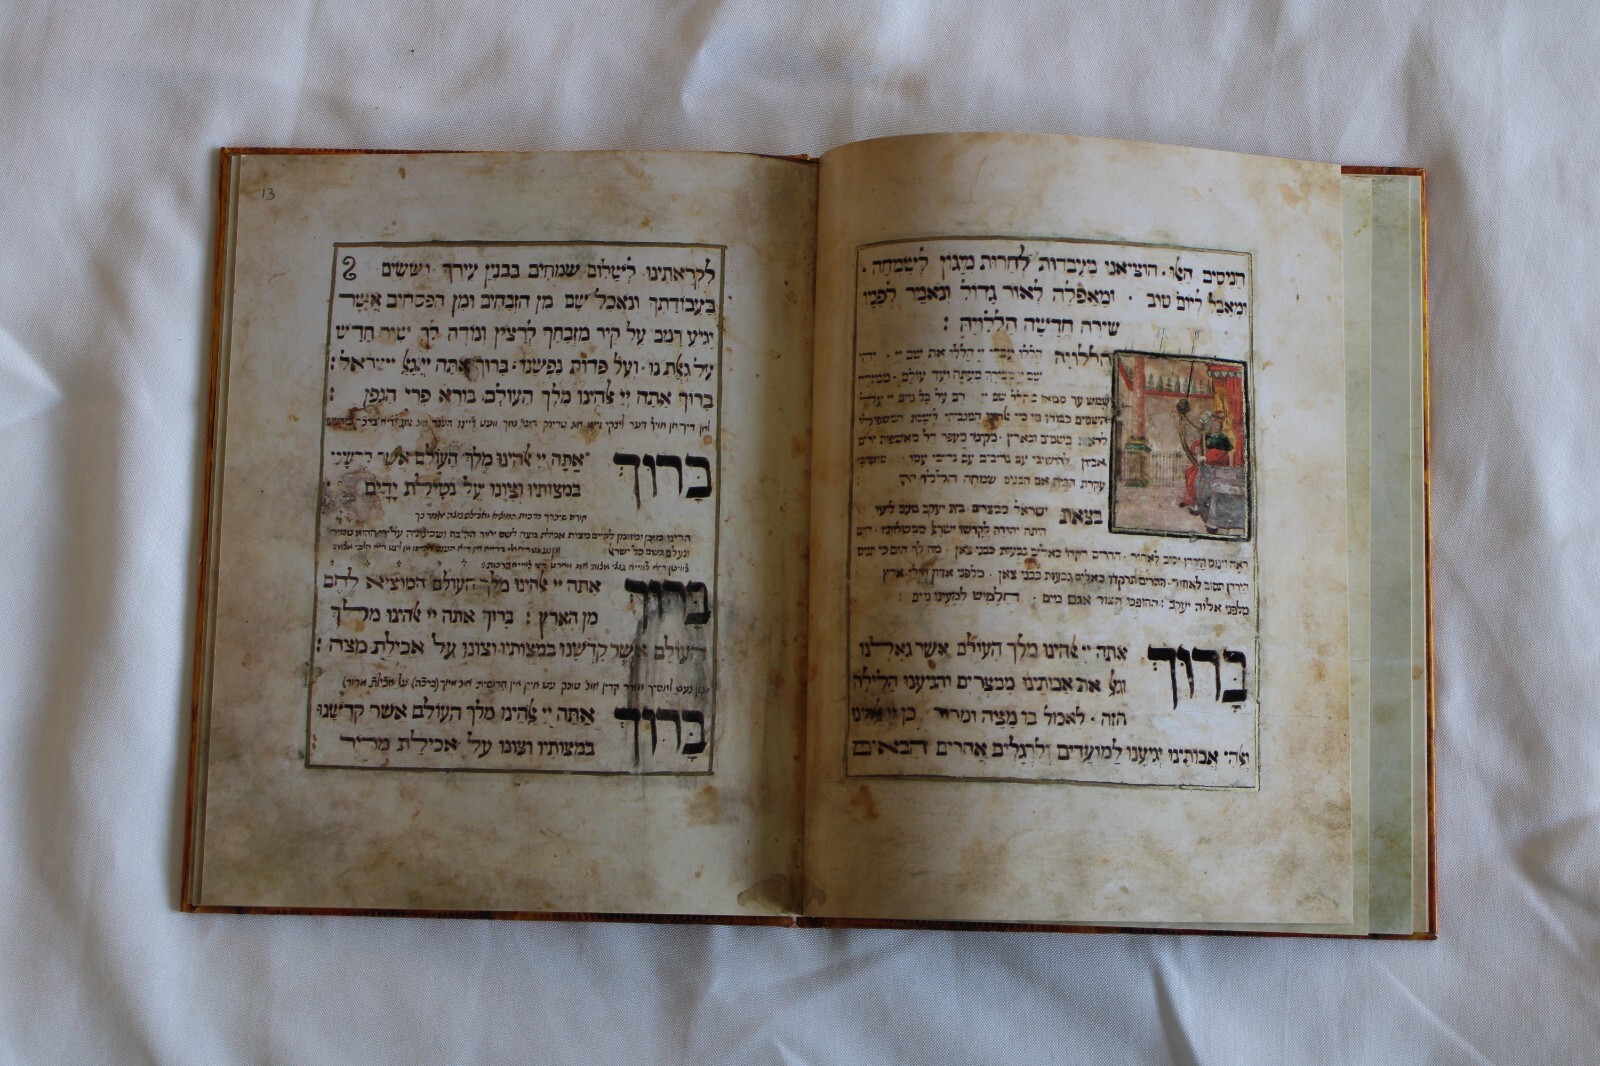 הניסים האו. הוציאנו מעבדות לחרות מיגון לשמחה.
ומאבל ליום טוב. ומאפלה לאור גדול ונאמר לפניו
שירה חדשה הללויה:
הללויה הללו עבדי יי הללו את שם יי. יהי
שם יי מבורך מעתה ועד עולם. ממזרח
שמש עד מבואו מהלל שם יי. רם על כל גוים יי על
השמים כבודו מי כיי המגביהי לשבת המשפילי
לראות בשמים ובארץ. מקימי מעפר דל מאשפות ירים
אביון להושיבי עם נדיבים עם נדיבי עמו
עקרת הבית אם הבנים שמחה הללויה:
בצאת ישראל ממצרים בית יעקב מעם לועז
היתה יהודה לקדשו ישראל ממשלותיו. הים
ראה וינס הירדן יסוב לאחור. ההרים רקדו כאילים גבעות כבני צאן. מה לך הים כי תנוס
הירדן תסוב לאחור. ההרים תרקדו כאלים גבעות כבני צאן. מלפני אדון חולי ארץ
מלפני אלוה יעקב: ההופכי הצור אגם מים. חלמיש למעינו מים:
ברוך אתה יי אלהינו מלך העולם אשר גאלנו
וגאל את אבותינו ממצרים והגיענו הלילה
הזה. לאכול בו מצה ומרור כן יי אלהינו
ואלהי אבותינו יגיענו למועדים ולרגלים אחרים הבאים
13
לקראתינו לשלום שמחים בבנין עירך וששים
בעבודתך ונאכל שם מן הזבחים ומן הפסחים אשר
יגיע דמם על קיר מזבחך לרצון ונודה לך שיר חדש
על גאלתנו. ועל פדות נפשנו. ברוך אתה יי גאל ישראל:
ברוך אתה יי אלהינו מלך העולם. בורא פרי הגפן:
ברוך אתה יי אלהינו מלך העולם אשר קדשנו
במצותיו וצונו על נטילת ידים
הריני מוכן ומזומן לקיים מצות אכילת מצה לשם יחוד הקב״ה ושכינתיה על ידי ההוא טמיר
ונעלם בשם כל ישראל:
ברוך אתה יי אלהינו מלך העולם המוציא לחם
מן הארץ: ברוך אתה יי אלהינו מלך
העולם אשר קדשנו במצותיו וצונו על אכילת מצה:
ברוך אתה יי אלהינו מלך העולם אשר קדשנו
במצותיו וצונו על אכילת מרור